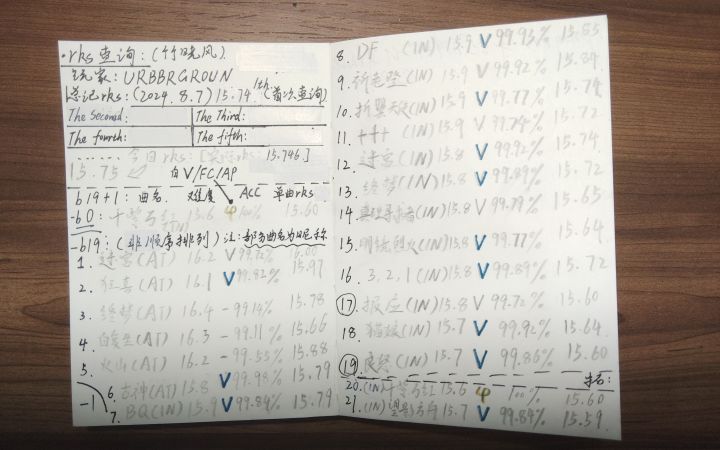 ·rks查询:(竹晓风).
玩家: URBBRGROUN
总记rks:(2024.8.7)15.74 1th(首次查询)
The Second: The Third:
The fourth: The fifth:
...... 今日rks:[实际rks: 15.746]
15.75 白V/FC/AP
b19+1: 曲名. 难度 ACC 单曲rks
-b0: 千誓万红 15.6 φ 100% 15.60
-b19:(非顺序排列) 注:部分曲名为昵称
1. 迷宫(AT) 16.2 V 99.72% 16.00
2. 狂喜(AT) 16.1 V 99.82% 15.97
3. 终梦(AT) 16.4 - 99.14% 15.78
4. (AT) 16.3 - 99.11% 15.66
5. 火山(AT) 16.2 - 99.55% 15.88
-1 6. 古神(AT) 15.8 V 99.98% 15.79
7. BQ(IN) 15.9 V 99.84% 15.79
8. DF (IN) 15.9 V 99.93% 15.85
9. (IN) 15.9 V 99.92% 15.84
10. 折翼天使(IN) 15.9 V 99.77% 15.74
11. +++ (IN) 15.9 V 99.74% 15.72
12. 迷宫(IN) 15.8 V 99.92% 15.74
13. 终梦(IN) 15.8 V 99.89% 15.72
14. (IN) 15.8 V 99.79% 15.65
15. 明镜烈火(IN) 15.8 V 99.77% 15.64
16. 3,2,1(IN) 15.8 V 99.89% 15.72
17. 报应(IN) 15.8 V 99.72% 15.60
18. 猫娘(IN) 15.7 V 99.92% 15.64
19. (IN) 15.7 V 99.86% 15.60
20. (IN)千誓万红 15.6 φ 100% 15.60
21. (IN)望影方向 15.7 V 99.84% 15.59